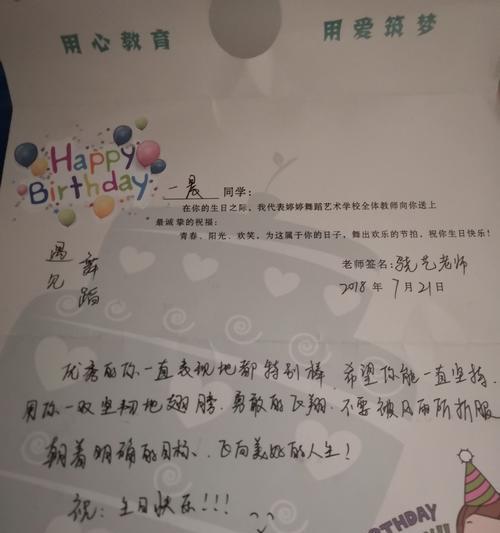 用心教育 用爱筑梦
Happy
Birthday
一晨 同学：
在你的生日之际，我代表婷婷舞蹈艺术学校全体教师向你送上
最诚挚的祝福：
青春、阳光、欢笑，为这属于你的日子，舞出欢乐的节拍，祝你生日快乐！
遇见
舞蹈
老师签名：晓艺老师
2018 年 7 月 21 日
优秀的你一直表现地都特别棒，希望你能一直坚持，
用你一双坚韧地翅膀，勇敢的飞翔，不要被风雨所折服
朝着明确的目标、飞向美好的人生！
祝：生日快乐!!!
BIRTHDAY